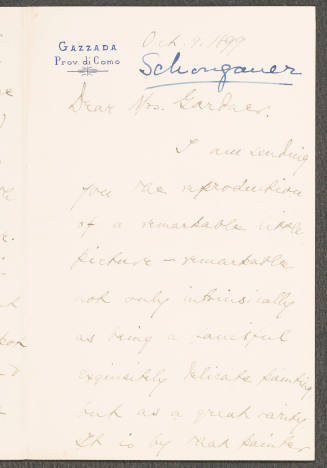 GAZZADA
Prov. di Como
Oct. 9. 1899
Schongauer
Dear Mrs. Gardner.
I am sending
you the reproduction
of a remarkable little
picture – remarkable
not only intrinsically
as being a
exquisitely delicate painting
but as a great rarity
It is by that painter